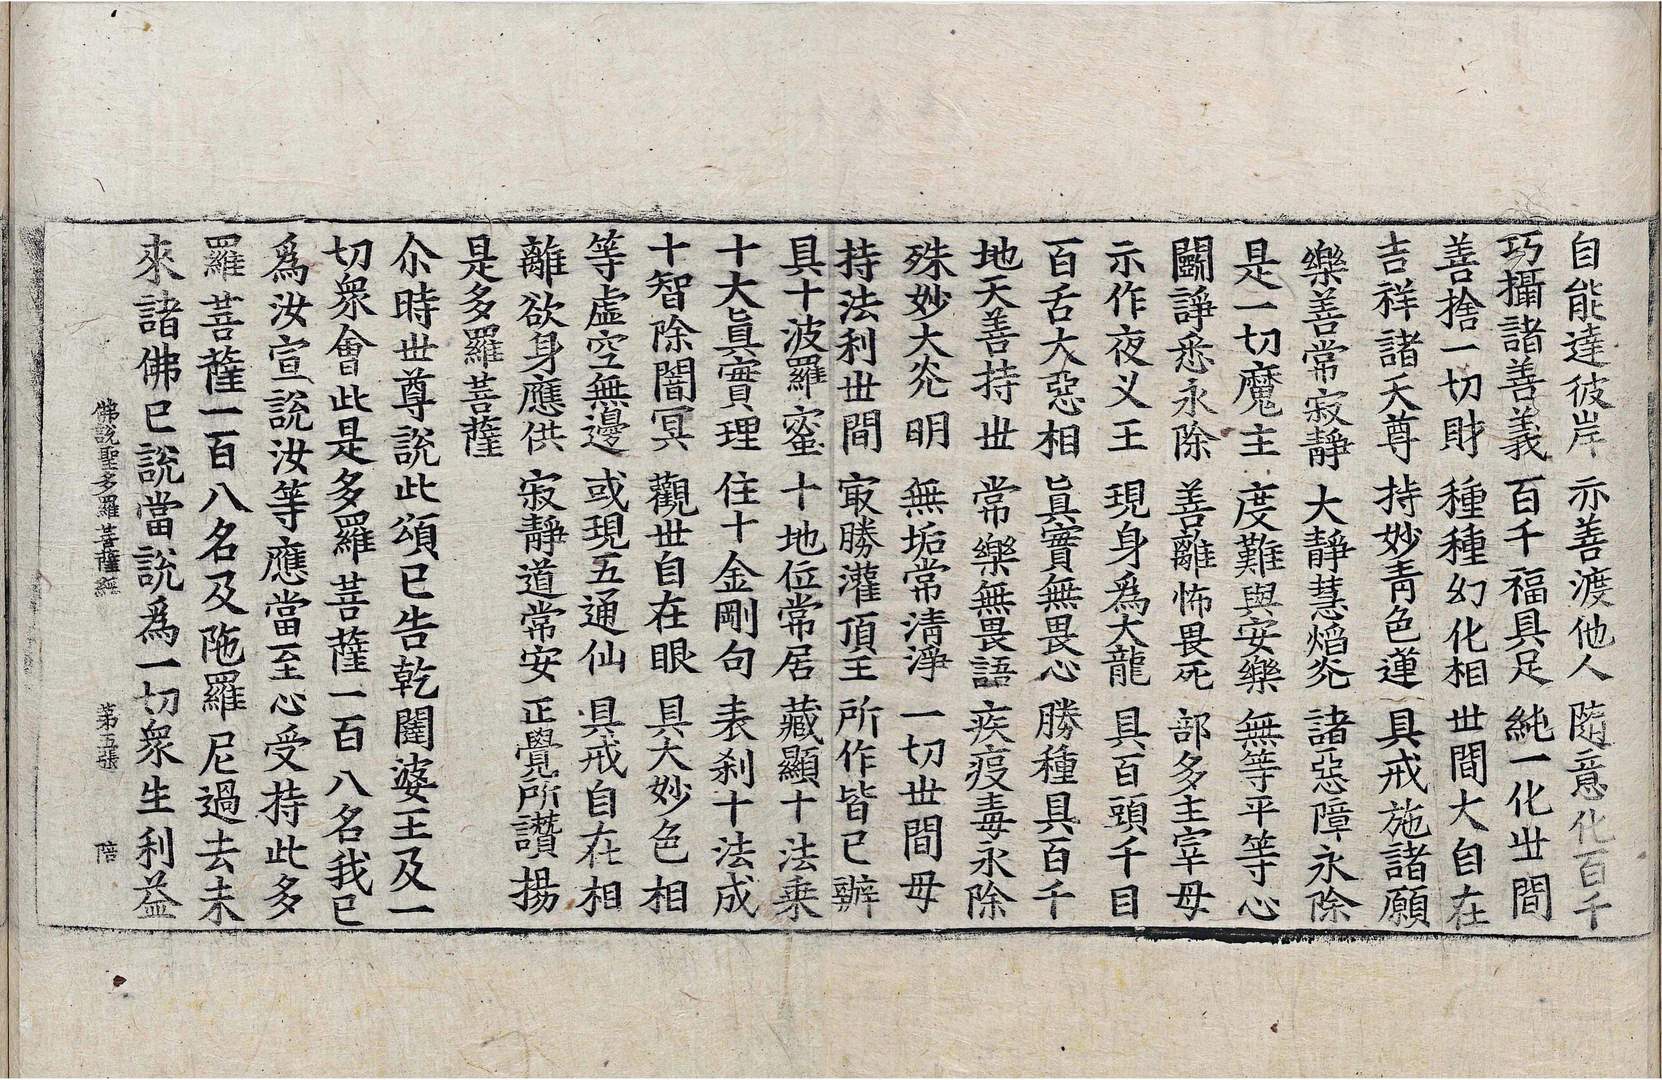 自能達彼岸 亦善渡他人 隨意化百千
巧攝諸善義 百千福具足 純一化世間
善捨一切財 種種幻化相 世間大自在
吉祥諸天尊 持妙青色蓮 具戒施諸願
樂善常寂靜 大靜慧焰炎 諸惡障永除
是一切魔主 度難與安樂 無等平等心
鬬諍悉永除 善離怖畏死 部多主宰母
示作夜叉王 現身爲大龍 具百頭千目
百舌大惡相 眞實無畏心 勝種具百千
地天善持世 常樂無畏語 疾疫毒永除
殊妙大炎明 無垢常清淨 一切世間母
持法利世間 㝡勝灌頂王 所作皆已辦
具十波羅蜜 十地位常居 藏顯十法乘
十大眞實理 住十金剛句 表刹十法成
十智除闇冥 觀世自在眼 具大妙色相
等虛空無邊 或現五通仙 具戒自在相
離欲身應供 寂靜道常安 正覺所讚揚
是多羅菩薩
尒時世尊說此頌已告乾闥婆王及一
切衆會此是多羅菩薩一百八名我已
爲汝宣說汝等應當至心受持此多
羅菩薩一百八名及陁羅尼過去未
來諸佛已說當說爲一切衆生利益
佛說聖多羅菩薩經 第五張 陪